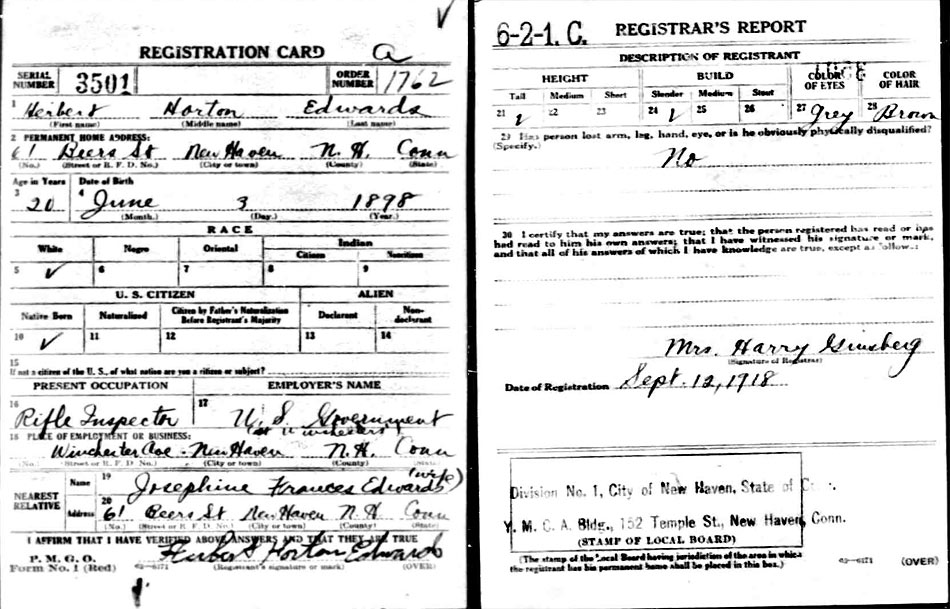 REGISTRATION CARD
SERIAL NUMBER 3501 ORDER NUMBER 1762
1 Herbert Horton Edwards
(First name) (Middle name) (Last name)
2 PERMANENT HOME ADDRESS:
61 Beers St New Haven N. H. Conn
(No.) (Street or R. F. D. No.) (City or town) (County) (State)
Age in Years Date of Birth
3 20 4 June 3 1898
(Month.) (Day.) (Year.)
RACE
White Negro Oriental Indian
Citizen Noncitizen
5 ✓ 6 7 8 9
U. S. CITIZEN ALIEN
Native Born Naturalized Citizen by Father's Naturalization Before Registrant's Majority Declarant Non-declarant
10 ✓ 11 12 13 14
15
If not a citizen of the U. S., of what nation are you a citizen or subject?
PRESENT OCCUPATION EMPLOYER'S NAME
16 Rifle Inspector 17 U. S. Government
at Winchesters
18 PLACE OF EMPLOYMENT OR BUSINESS:
Winchester Ave - New Haven N. H. Conn
(No.) (Street or R. F. D. No.) (City or town) (County) (State)
NEAREST RELATIVE Name 19 Josephine Frances Edwards (wife)
Address 20 61 Beers St New Haven N. H Conn
(No.) (Street or R. F. D. No.) (City or town) (County) (State)
I AFFIRM THAT I HAVE VERIFIED ABOVE ANSWERS AND THAT THEY ARE TRUE
P. M. G. O.
Form No. 1 (Red) Herbert Horton Edwards
(Registrant's signature or mark) (OVER)
6-2-1. C. REGISTRAR'S REPORT
DESCRIPTION OF REGISTRANT
HEIGHT BUILD COLOR OF EYES COLOR OF HAIR
Tall Medium Short Slender Medium Stout
21 ✓ 22 23 24 ✓ 25 26 27 Grey 28 Brown
29 Has person lost arm, leg, hand, eye, or is he obviously physically disqualified?
(Specify.)
No
30 I certify that my answers are true; that the person registered has read or has
had read to him his own answers; that I have witnessed his signature or mark,
and that all of his answers of which I have knowledge are true, except as follows:
Mrs. Harry Ginsberg
(Signature of Registrar)
Date of Registration Sept. 12, 1918
Division No. 1, City of New Haven, State of Conn.
Y. M. C. A. Bldg., 152 Temple St., New Haven, Conn.
(STAMP OF LOCAL BOARD)
(The stamp of the Local Board having jurisdiction of the area in which
the registrant has his permanent home shall be placed in this box.)
(OVER)